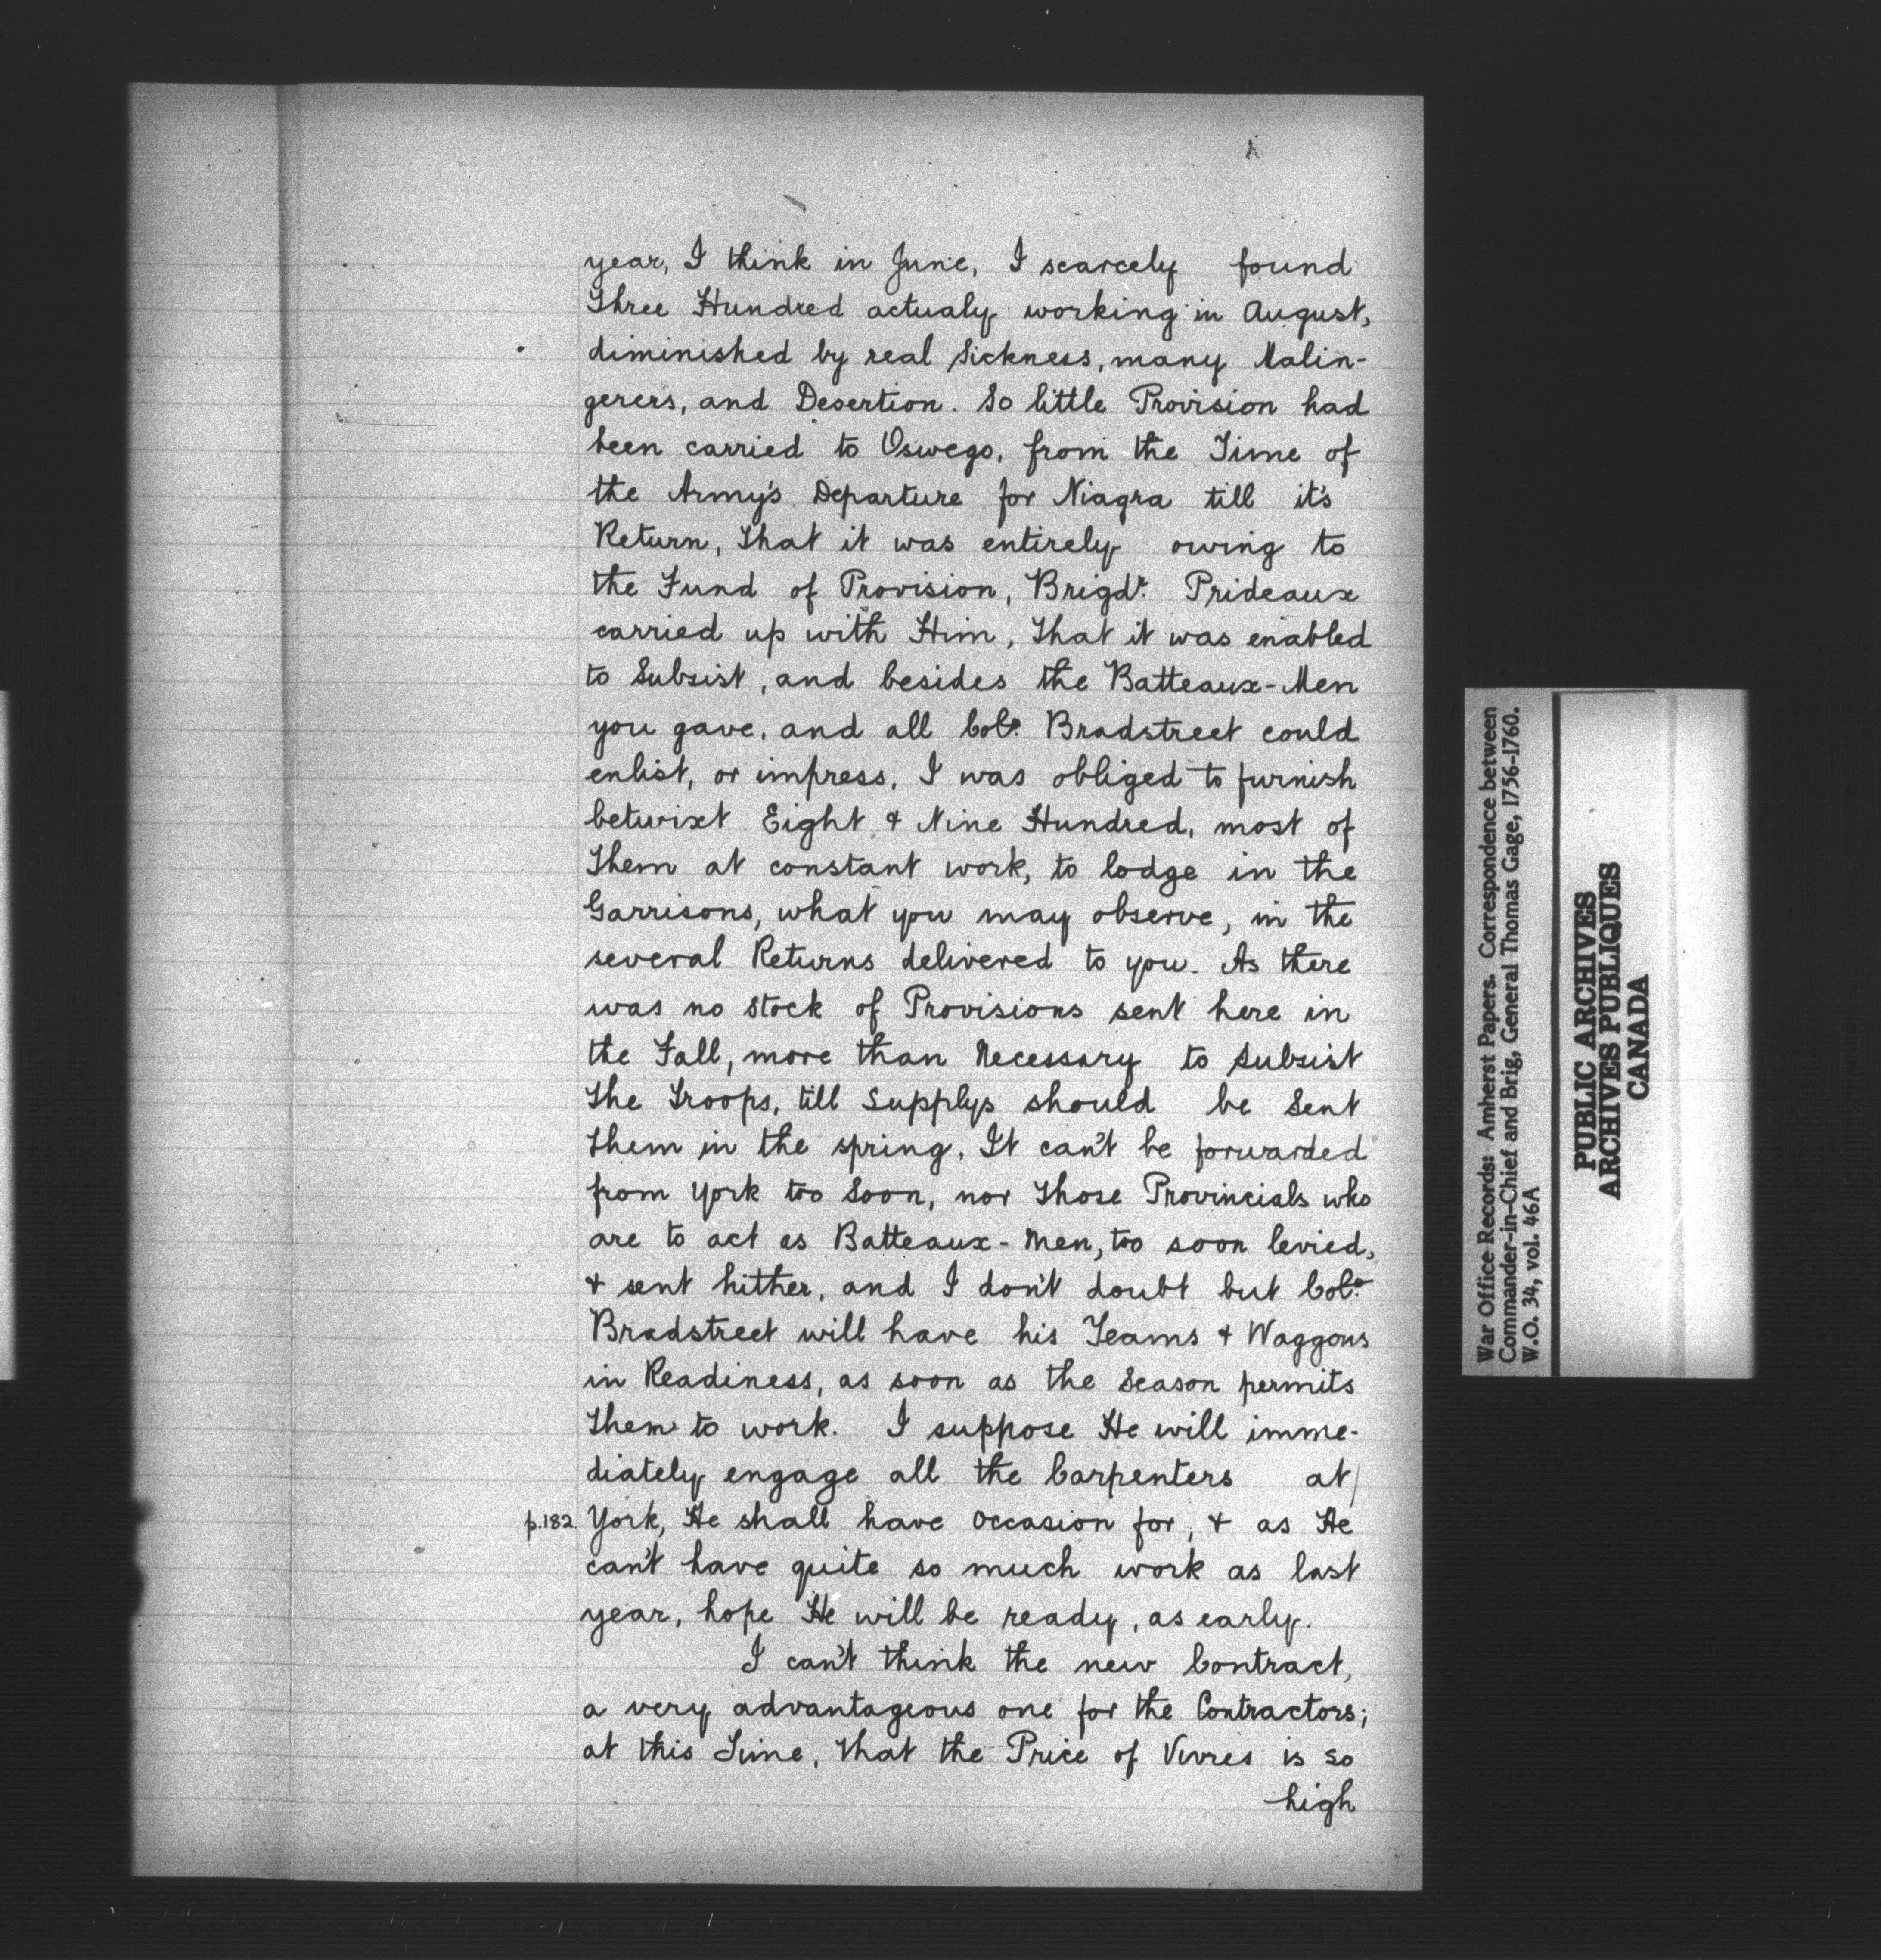 year, I think in June, I scarcely found
Three Hundred actualy working in August,
diminished by real Sickness, many Malin-
gerers, and Desertion. So little Provision had
been carried to Oswego, from the Time of
the Army's Departure for Niagra till it's
Return, That it was entirely owing to
the Fund of Provision, Brigdr. Prideaux
carried up with Him, That it was enabled
to Subsist, and besides the Batteaux-Men
you gave, and all Colo. Bradstreet could
enlist, or impress, I was obliged to furnish
betwixt Eight & Nine Hundred, most of
Them at constant work, to lodge in the
Garrisons, what you may observe, in the
several Returns delivered to you. As there
was no Stock of Provisions sent here in
the Fall, more than Necessary to Subsist
The Troops, till Supplys should be Sent
Them in the spring, It can't be forwarded
from York too Soon, nor Those Provincials who
are to act as Batteaux-Men, too soon levied,
& sent hither, and I don't doubt but Colo.
Bradstreet will have his Teams & Waggons
in Readiness, as soon as the Season permits
Them to work. I suppose He will imme-
diately engage all the Carpenters at/
p.182. York, He shall have Occasion for, & as He
can't have quite so much work as last
year, hope He will be ready, as early.
I can't think the new Contract,
a very advantageous one for the Contractors;
at this Time, That the Price of Vivres is so
high
War Office Records: Amherst Papers. Correspondence between
Commander-in-Chief and Brig, General Thomas Gage, 1756-1760.
W.O. 34, vol. 46A
PUBLIC ARCHIVES
ARCHIVES PUBLIQUES
CANADA